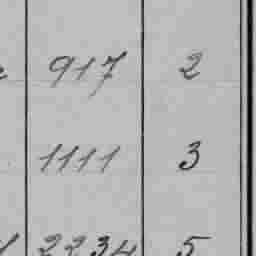 917 2
1111 3
2234 5